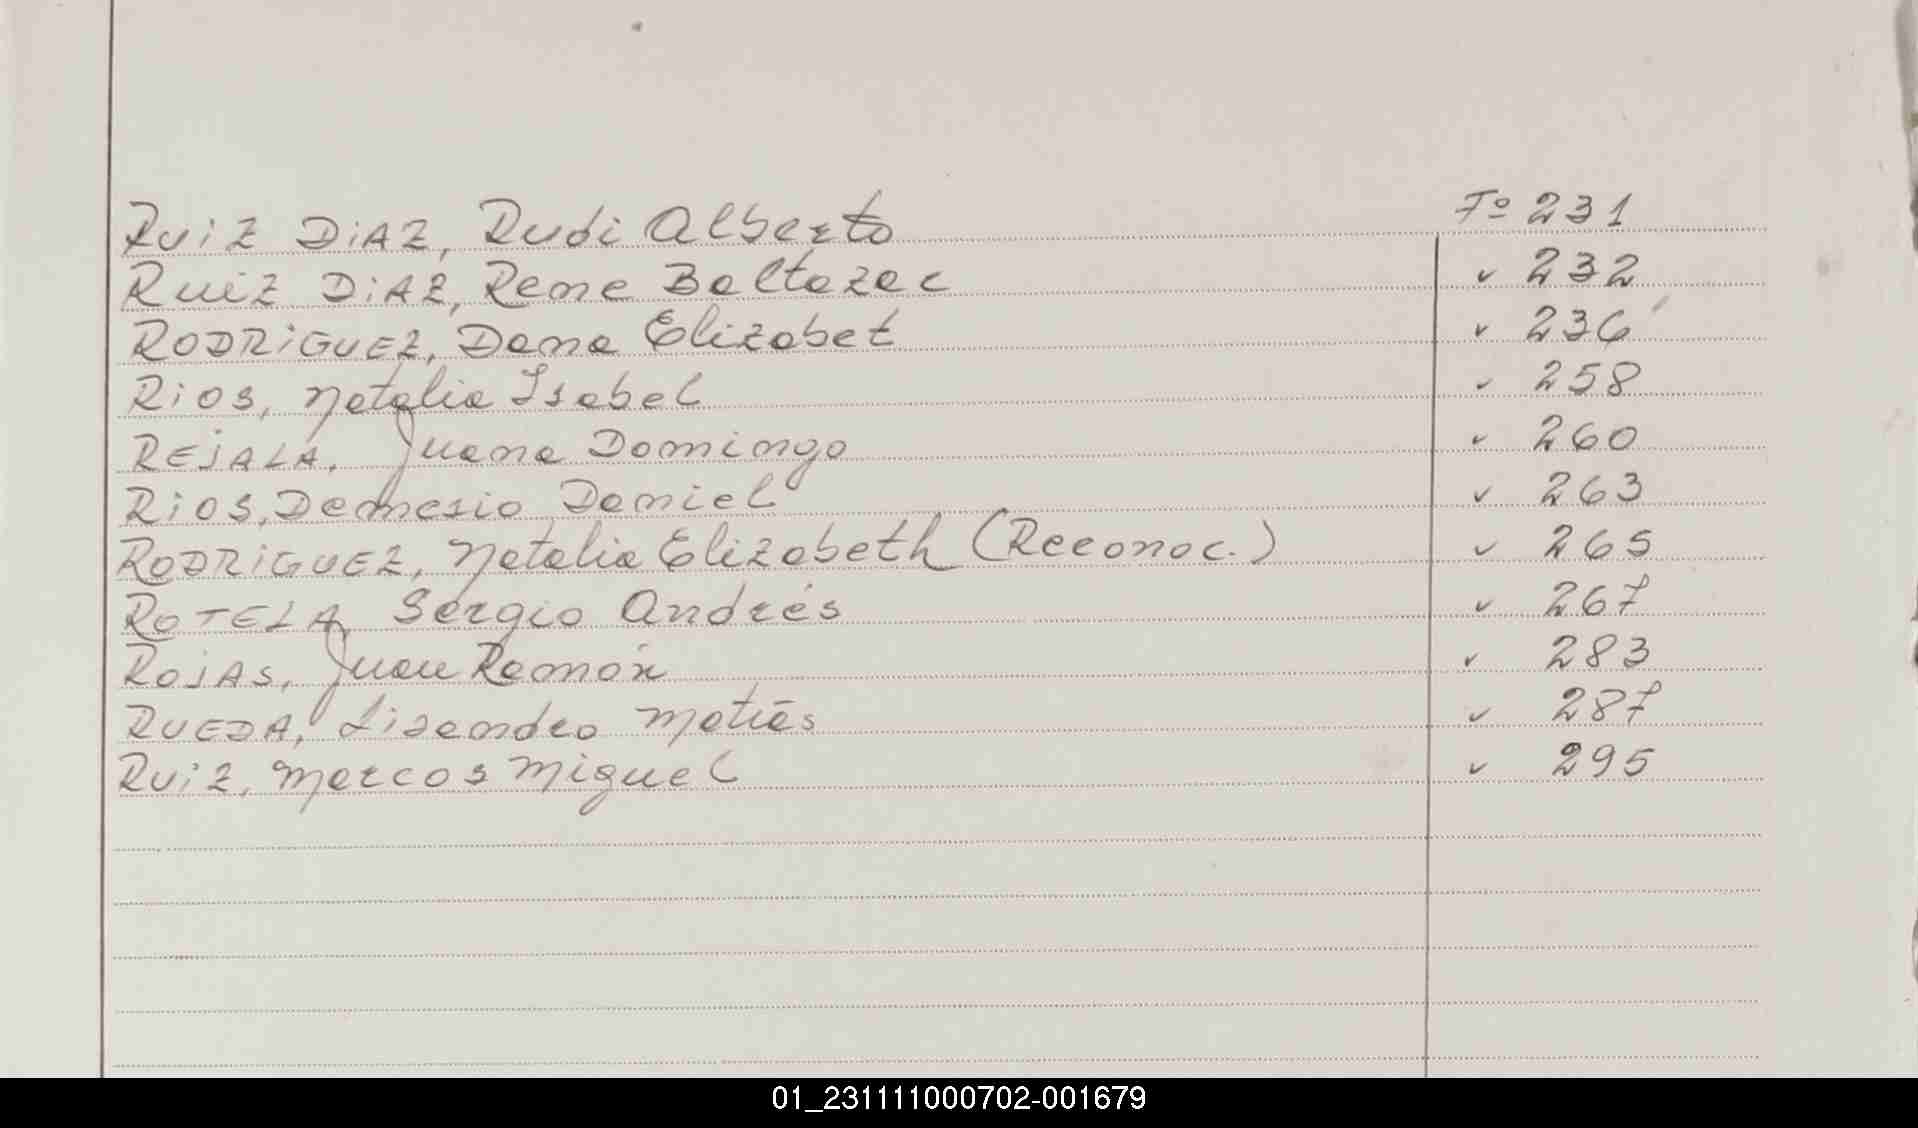 RUIZ DIAZ, Rudi Alberto Fº 231
RUIZ DIAZ, Rene Baltazar ✓ 232
RODRIGUEZ, Dana Elizabet ✓ 236
RIOS, Natalia Isabel ✓ 258
REJALA, Juana Domingo ✓ 260
RIOS, Demesio Daniel ✓ 263
RODRIGUEZ, Natalia Elizabeth (Reconoc.) ✓ 265
ROTELA, Sergio Andrés ✓ 267
ROJAS, Juan Ramón ✓ 283
RUEDA, Lisandro Matías ✓ 287
RUIZ, Marcos Miguel ✓ 295
01_231111000702-001679